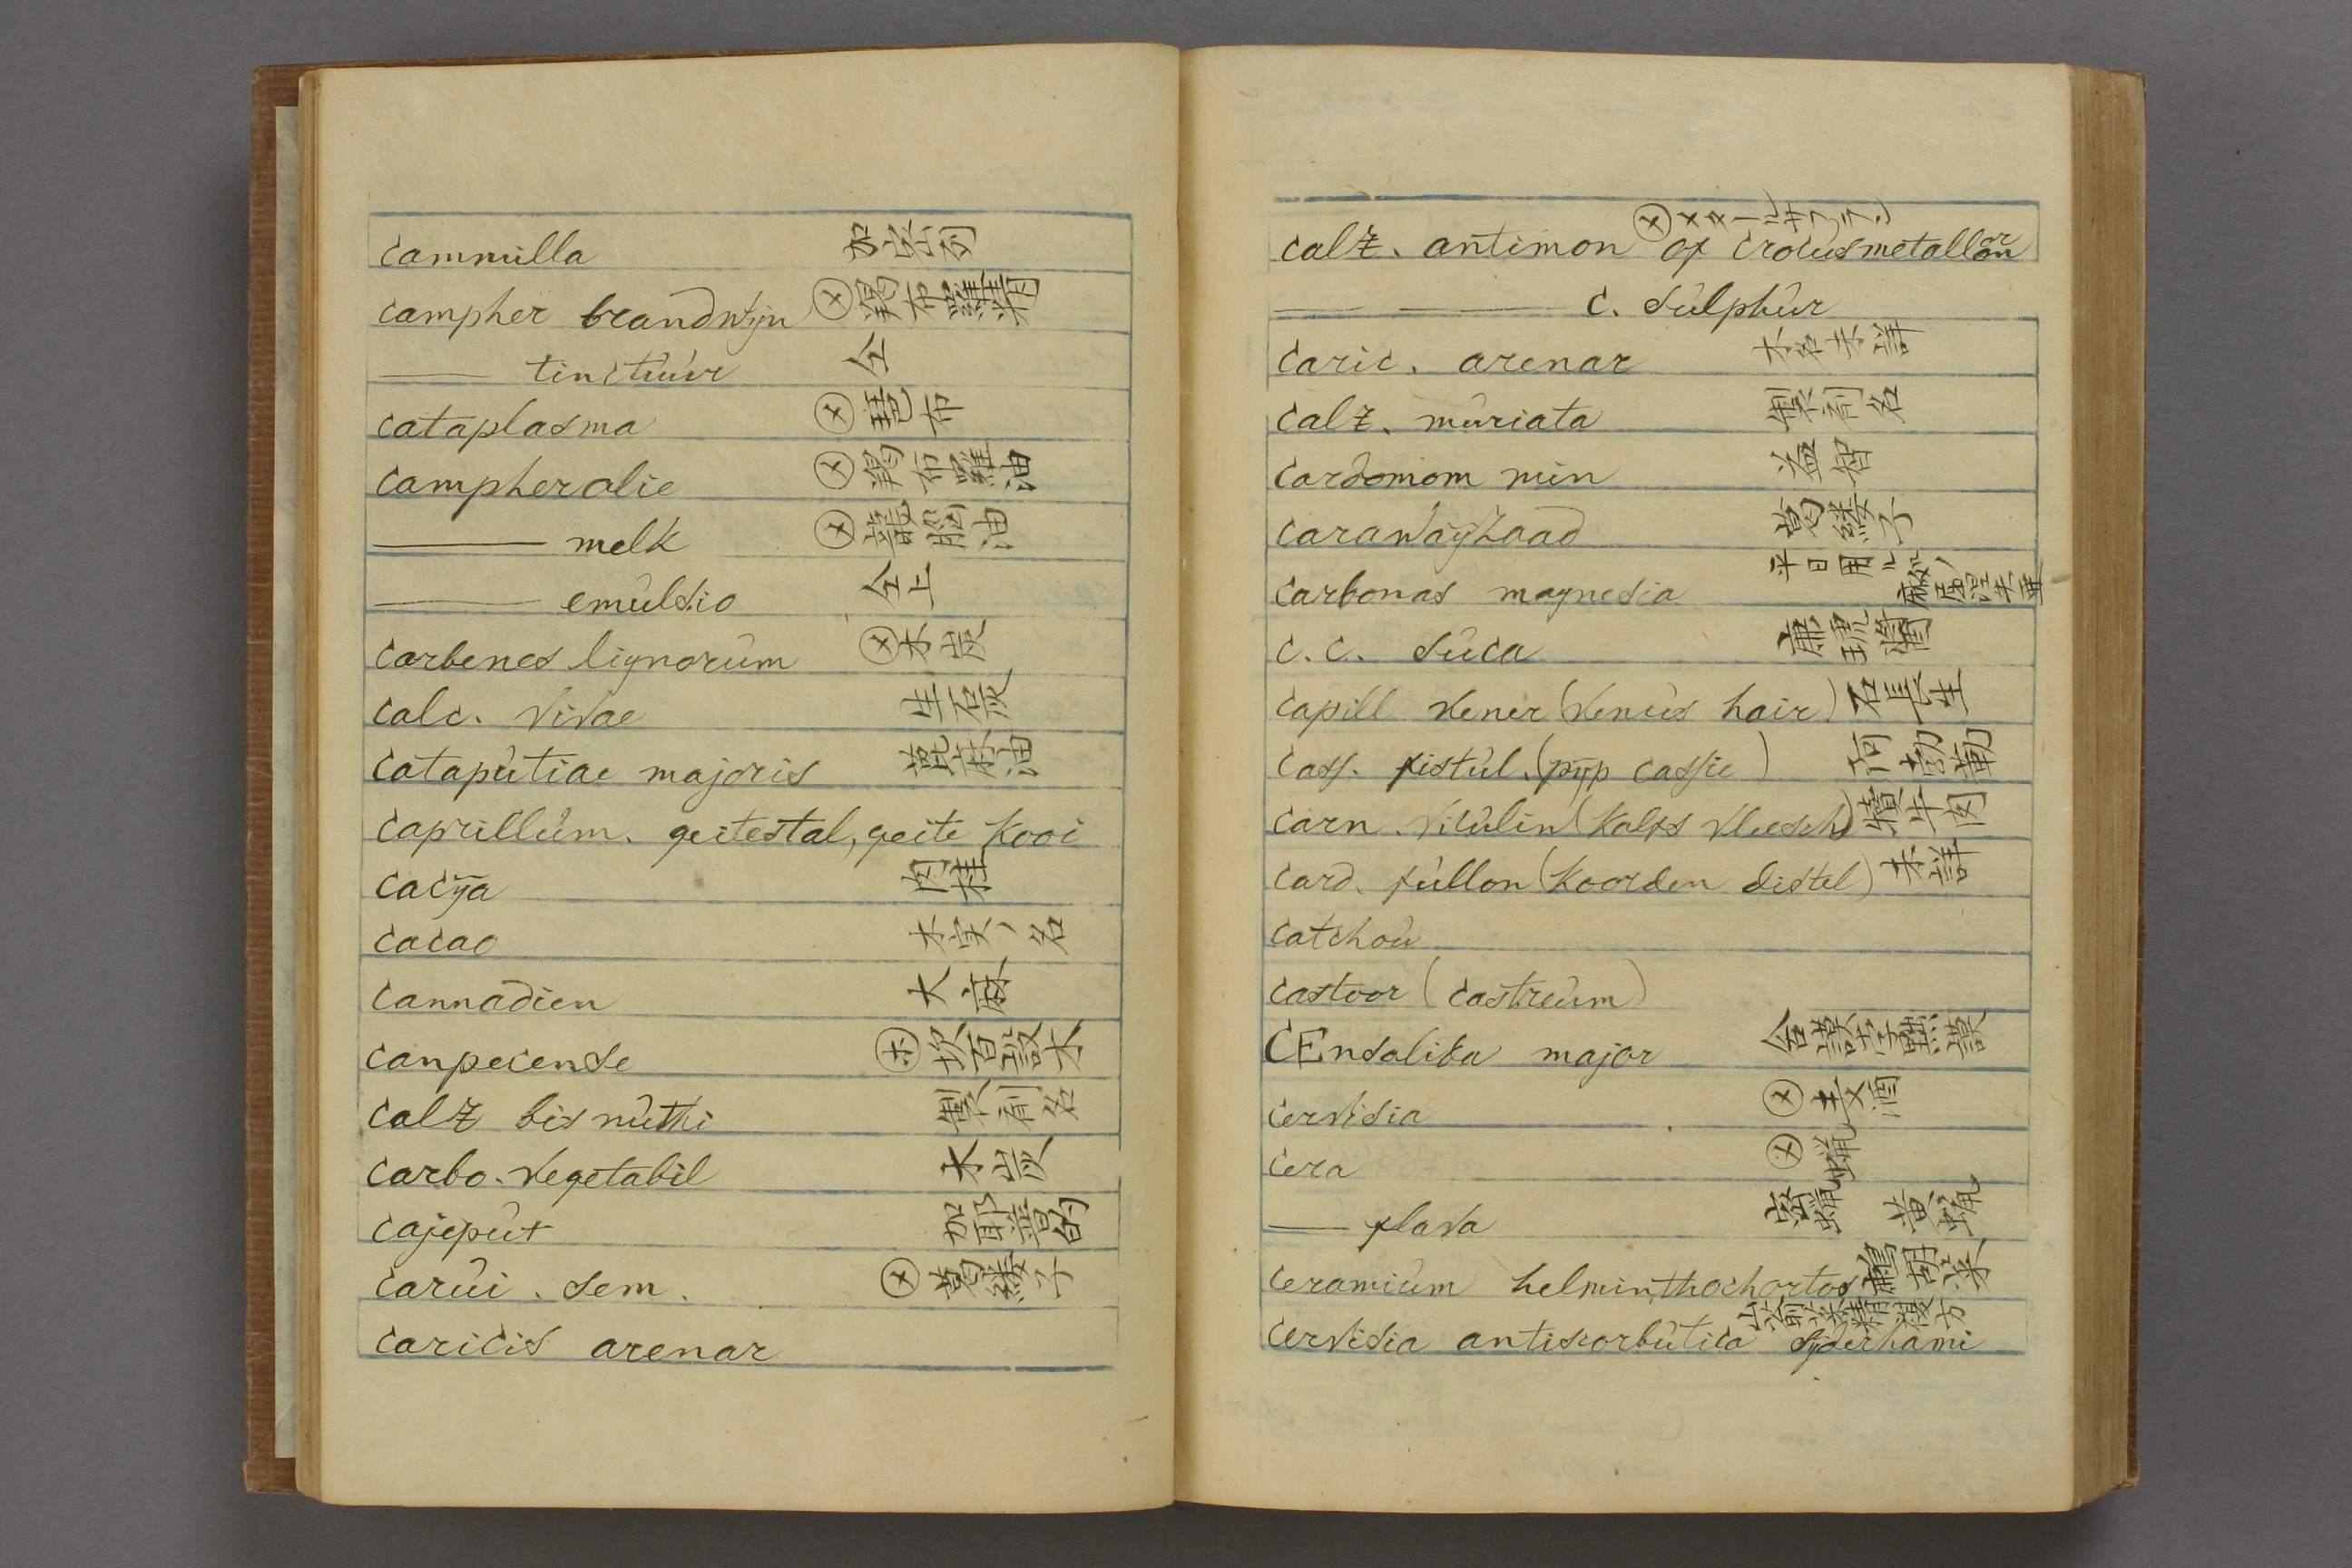 cammilla 加密列
campher brandwijn ㋱ 羯布羅精
—— tinctúúr 仝
cataplasma ㋱ 琶布
campherolie ㋱ 羯布羅油
—— melk ㋱ 龍腦油
—— emúlsio 仝上
carbenes lignorúm ㋱ 木炭
calc. vivae 生石灰
catapútiae majoris 萆麻油
caprillúm. geitestal, geite kooi
cacÿa 肉桂
cacao 木実ノ名
cannadien 大麻
canpecense ㋭ 坎百設木
calz bis núthi 製剤名
carbo. vegetabil 木炭
cajepút 加耶普的
carúi. sem. ㋱ 葛縷子
caricis arenar
㋱ メタールサフラン
calz. antimon of crocúsmetallon or
—— —— c. súlphúr
caric. arenar 木名未詳
calz. múriata 製剤名
cardomom min 益智
carawaÿzaad 葛縷子
carbonas magnesia 平日用ル処ノ麻屈涅失亜
c.c. súca 鹿琥
capill vener (venús hair) 石長生
cass. fistúl. (pÿp cassie) 阿勃勒
carn. vitúlin (kalfs vleesch) 犢牛肉
card. fúllon (koorden distel) 未詳
catchoú
castoor (castreúm)
CEnsalika major
cervisia ㋱ 麦酒
cera ㋱ 蝋
—— flava 蜜蝋 黄蝋
ceramiúm helminthochortos 鷓胡菜
cervisia antiscorbútica sÿderhami